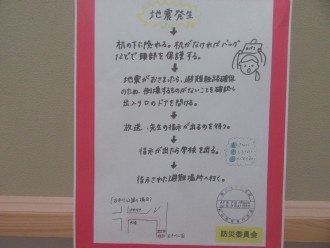 地震発生
机の下に隠れる。机がなければバッグ
などで頭部を保護する。
地震がおさまったら、避難経路確保
のため、倒壊するものがないことを確認し
出入り口のドアを開ける。
放送、先生の指示が出るのを待つ。
指示が出たら学校を出る。
指示された避難場所へ行く。
防災委員会